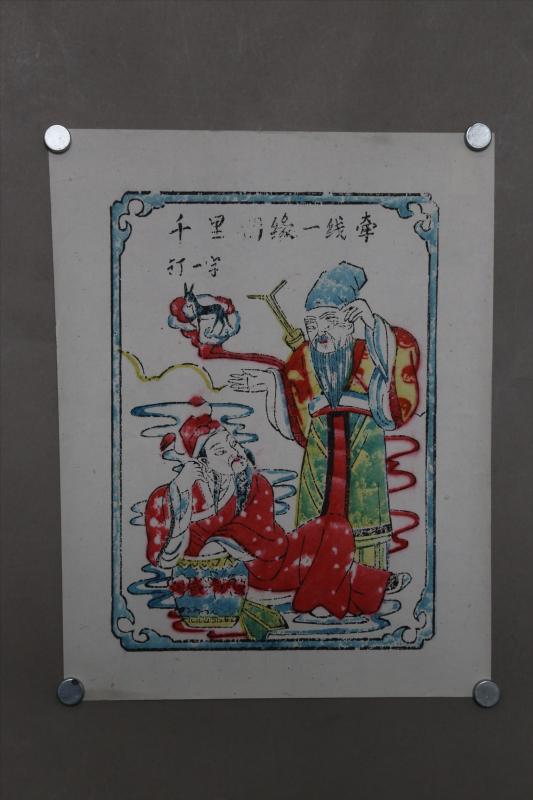 千里姻緣一綫牽
打一字